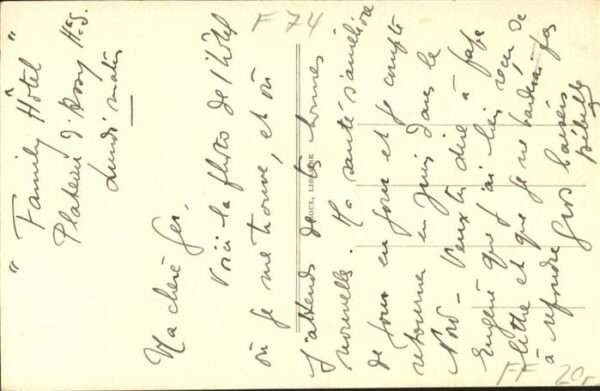 " Family Hôtel "
Plateau d'Assy Hte S.
Lundi matin
Ma chère Ger,
Voici la photo de l'hôtel
où je me trouve, et où
j'attends de tes bonnes
nouvelles. Ma santé s'améliore
de jour en jour et je compte
retourner en Juin dans le
Nord - Veux-tu dire à
Eugène que j'ai bien reçu sa
lettre et que je ne tarderai pas
à répondre Gros baisers
Bébelle
F 74
FF 20,-